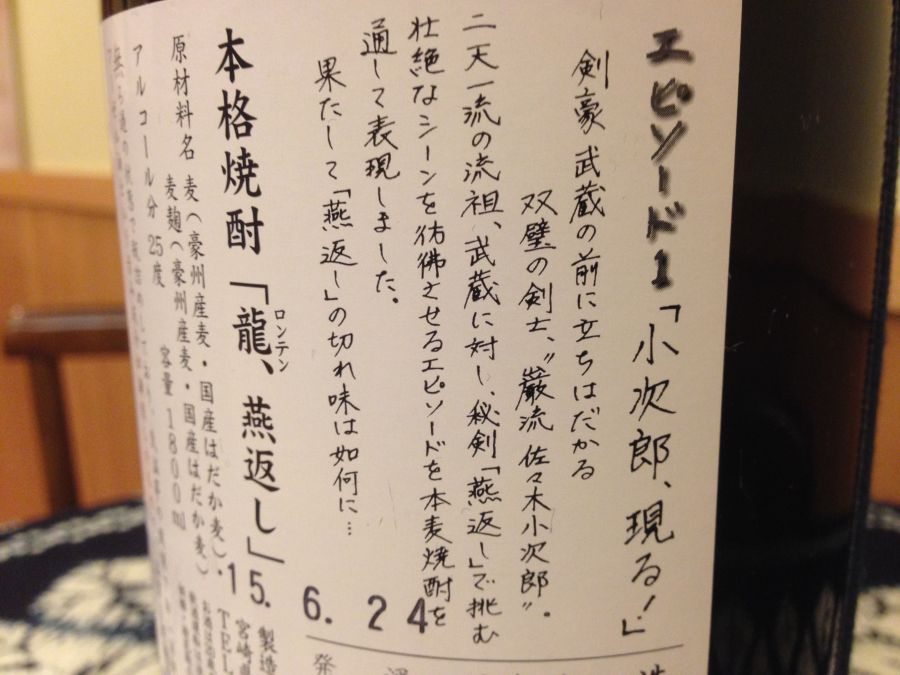 エピソード1「小次郎、現る!」
剣豪 武蔵の前に立ちはだかる
双璧の剣士、〝巌流 佐々木小次郎〟。
二天一流の流祖、武蔵に対し、秘剣「燕返し」で挑む
壮絶なシーンを彷彿させるエピソードを本麦焼酎を
通して表現しました。
果たして「燕返し」の切れ味は如何に…
本格焼酎「龍、燕返し」
ロンテン
原材料名 麦(豪州産麦・国産はだか麦)・
麦麹(豪州産麦・国産はだか麦)
アルコール分 25度 容量 1800ml
15. 6. 24
製造
宮崎県
TEL
発